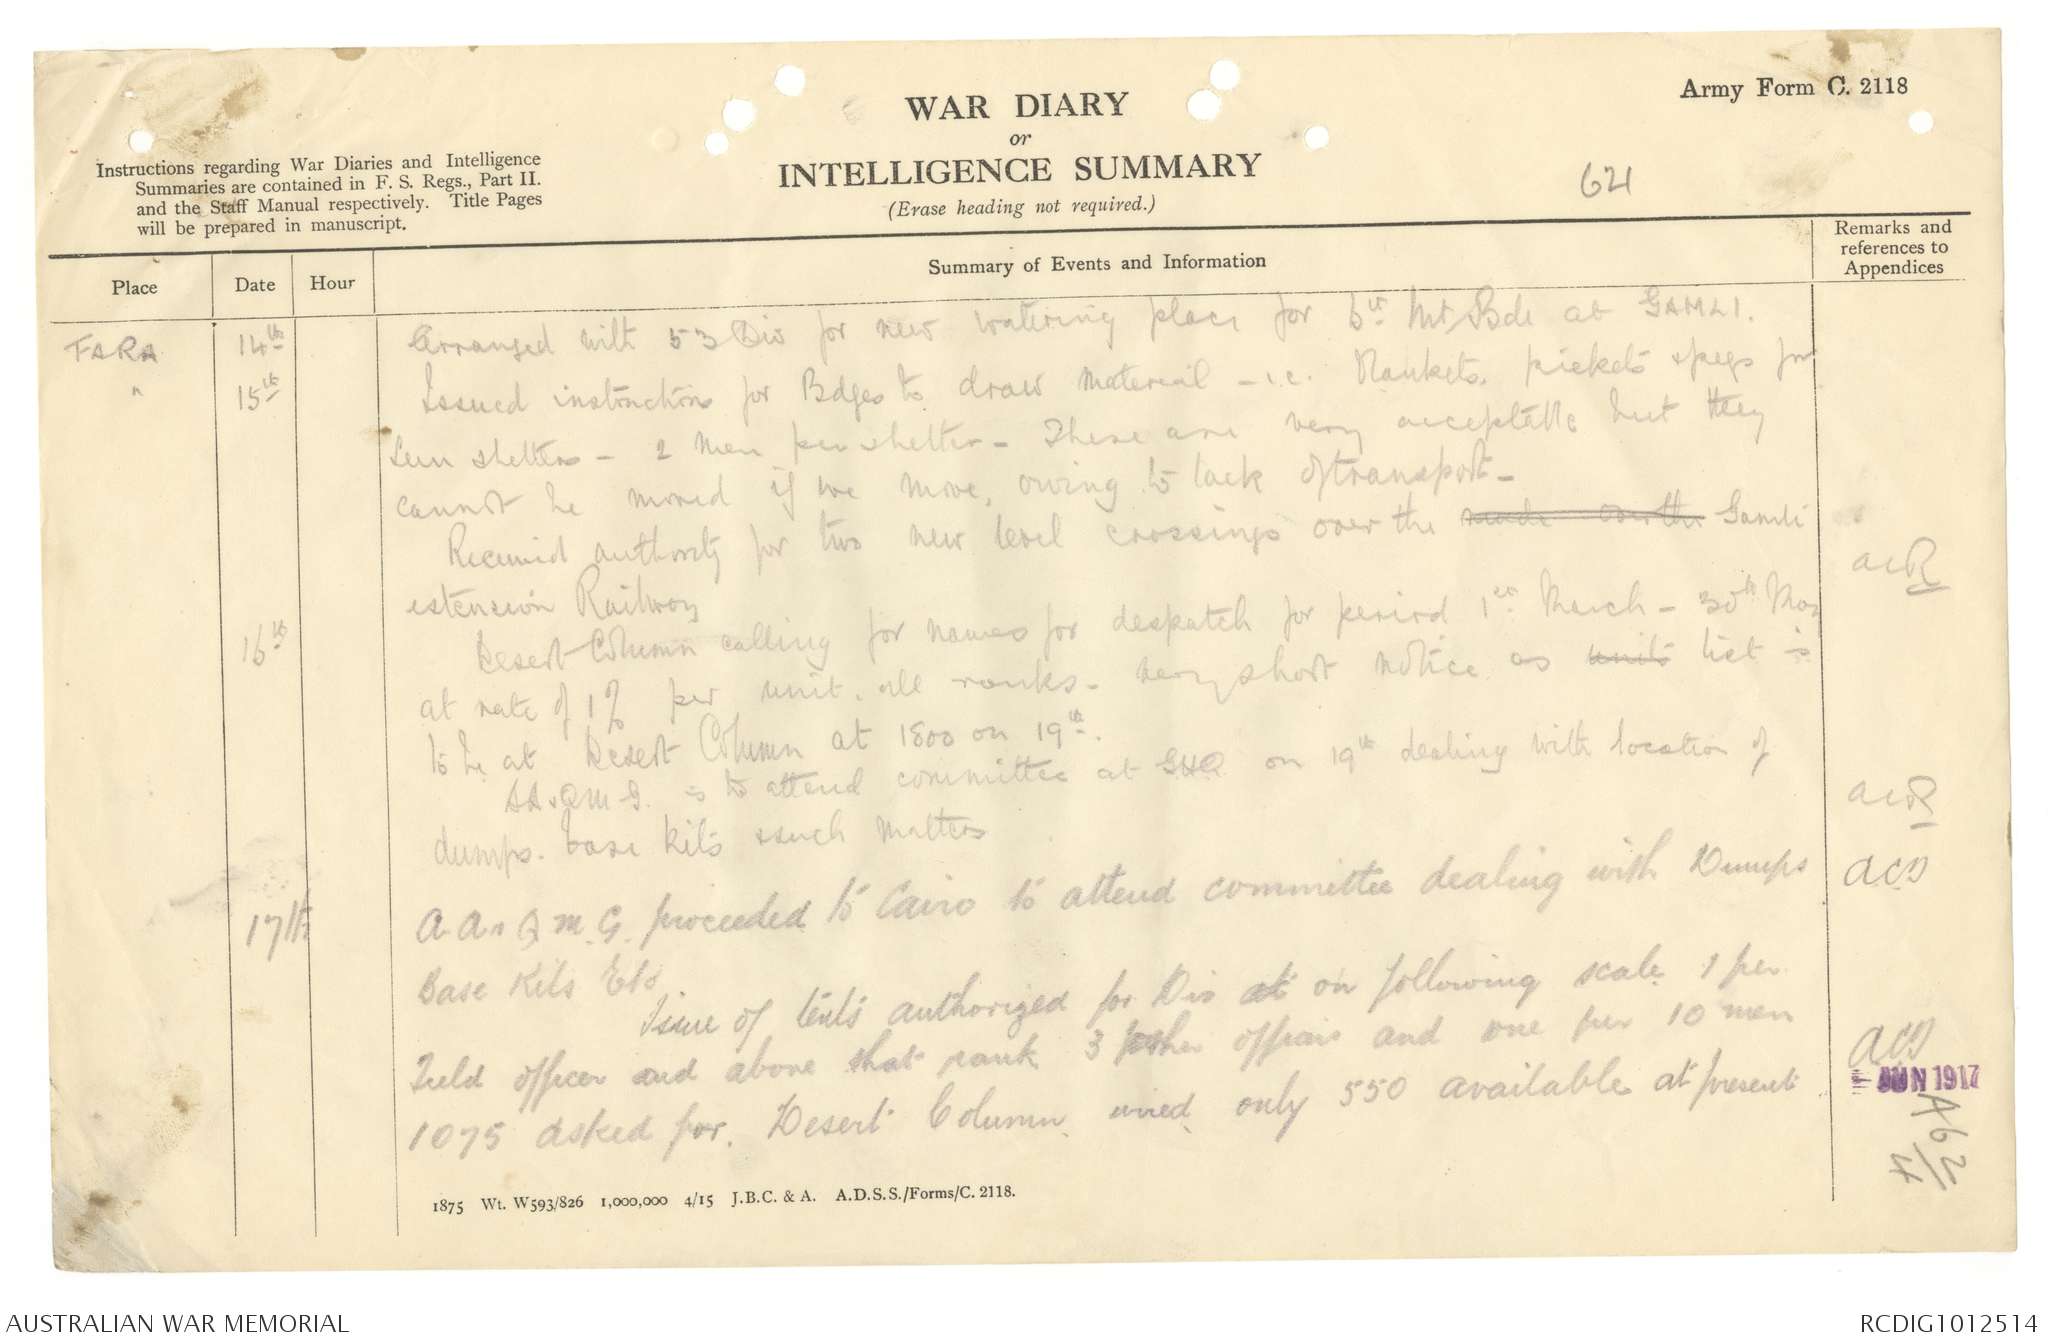 Army Form C. 2118
WAR DIARY
or
INTELLIGENCE SUMMARY
(Erase heading not required.)
Instructions regarding War Diaries and Intelligence
Summaries are contained in F. S. Regs., Part II.
and the Staff Manual respectively. Title Pages
will be prepared in manuscript.
621
Place
Date
Hour
Summary of Events and Information
Remarks and
references to
Appendices
FARA 14th Arranged with 53 Div for new watering place for 6th Mtd Bde at GAMLI.
" 15th Issued instructions for Bdges to draw material – i.e. Blankets, pickets & pegs for
Sun shelters – 2 men per shelter – These are very acceptable but they
cannot be moved if we move, owing to lack of transport –
Received authority for two new level crossings over the made over the Gamli
extension Railway
acR
16th Desert Column calling for names for despatch for period 1st March – 30th May
at rate of 1% per unit. all ranks – Very short notice as units list is
to be at Desert Column at 1800 on 19th.
AA & QMG. is to attend committee at GHQ on 19th dealing with location of
dumps. base kits & such matters
acR
17th A.A & Q.M.G. proceeded to Cairo to attend committee dealing with Dumps
Base Kits Etc
acD
Issue of tents authorized for Div at on following scale 1 per
Field officer and above that rank 3 other officers and one per 10 men
1075 asked for. Desert Column wired only 550 available at present
acD
JUN 1917
A62/4
1875 Wt. W593/826 1,000,000 4/15 J.B.C. & A. A.D.S.S./Forms/C. 2118.
AUSTRALIAN WAR MEMORIAL
RCDIG1012514